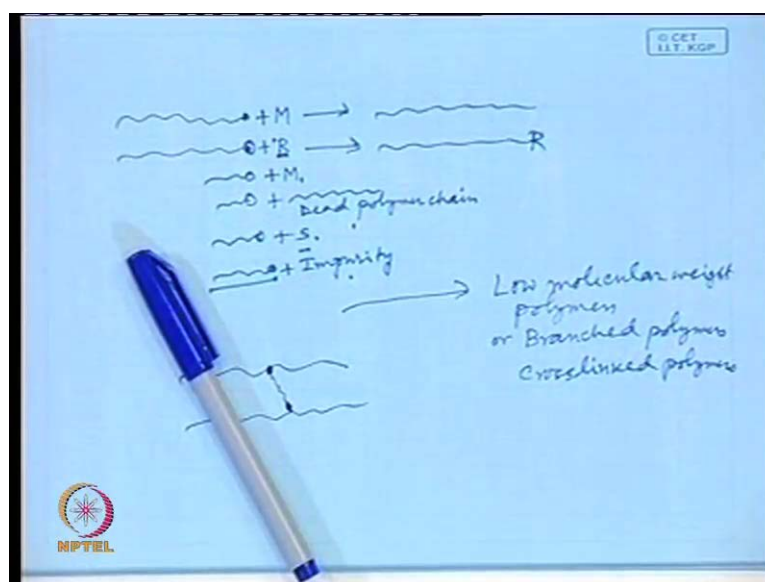 © CET
I.I.T. KGP
+ M →
+ B → R
+ M.
+
Dead polymer chain
+ S.
+ Impurity
→ Low molecular weight
polymers
or Branched polymers
Crosslinked polymers
NPTEL